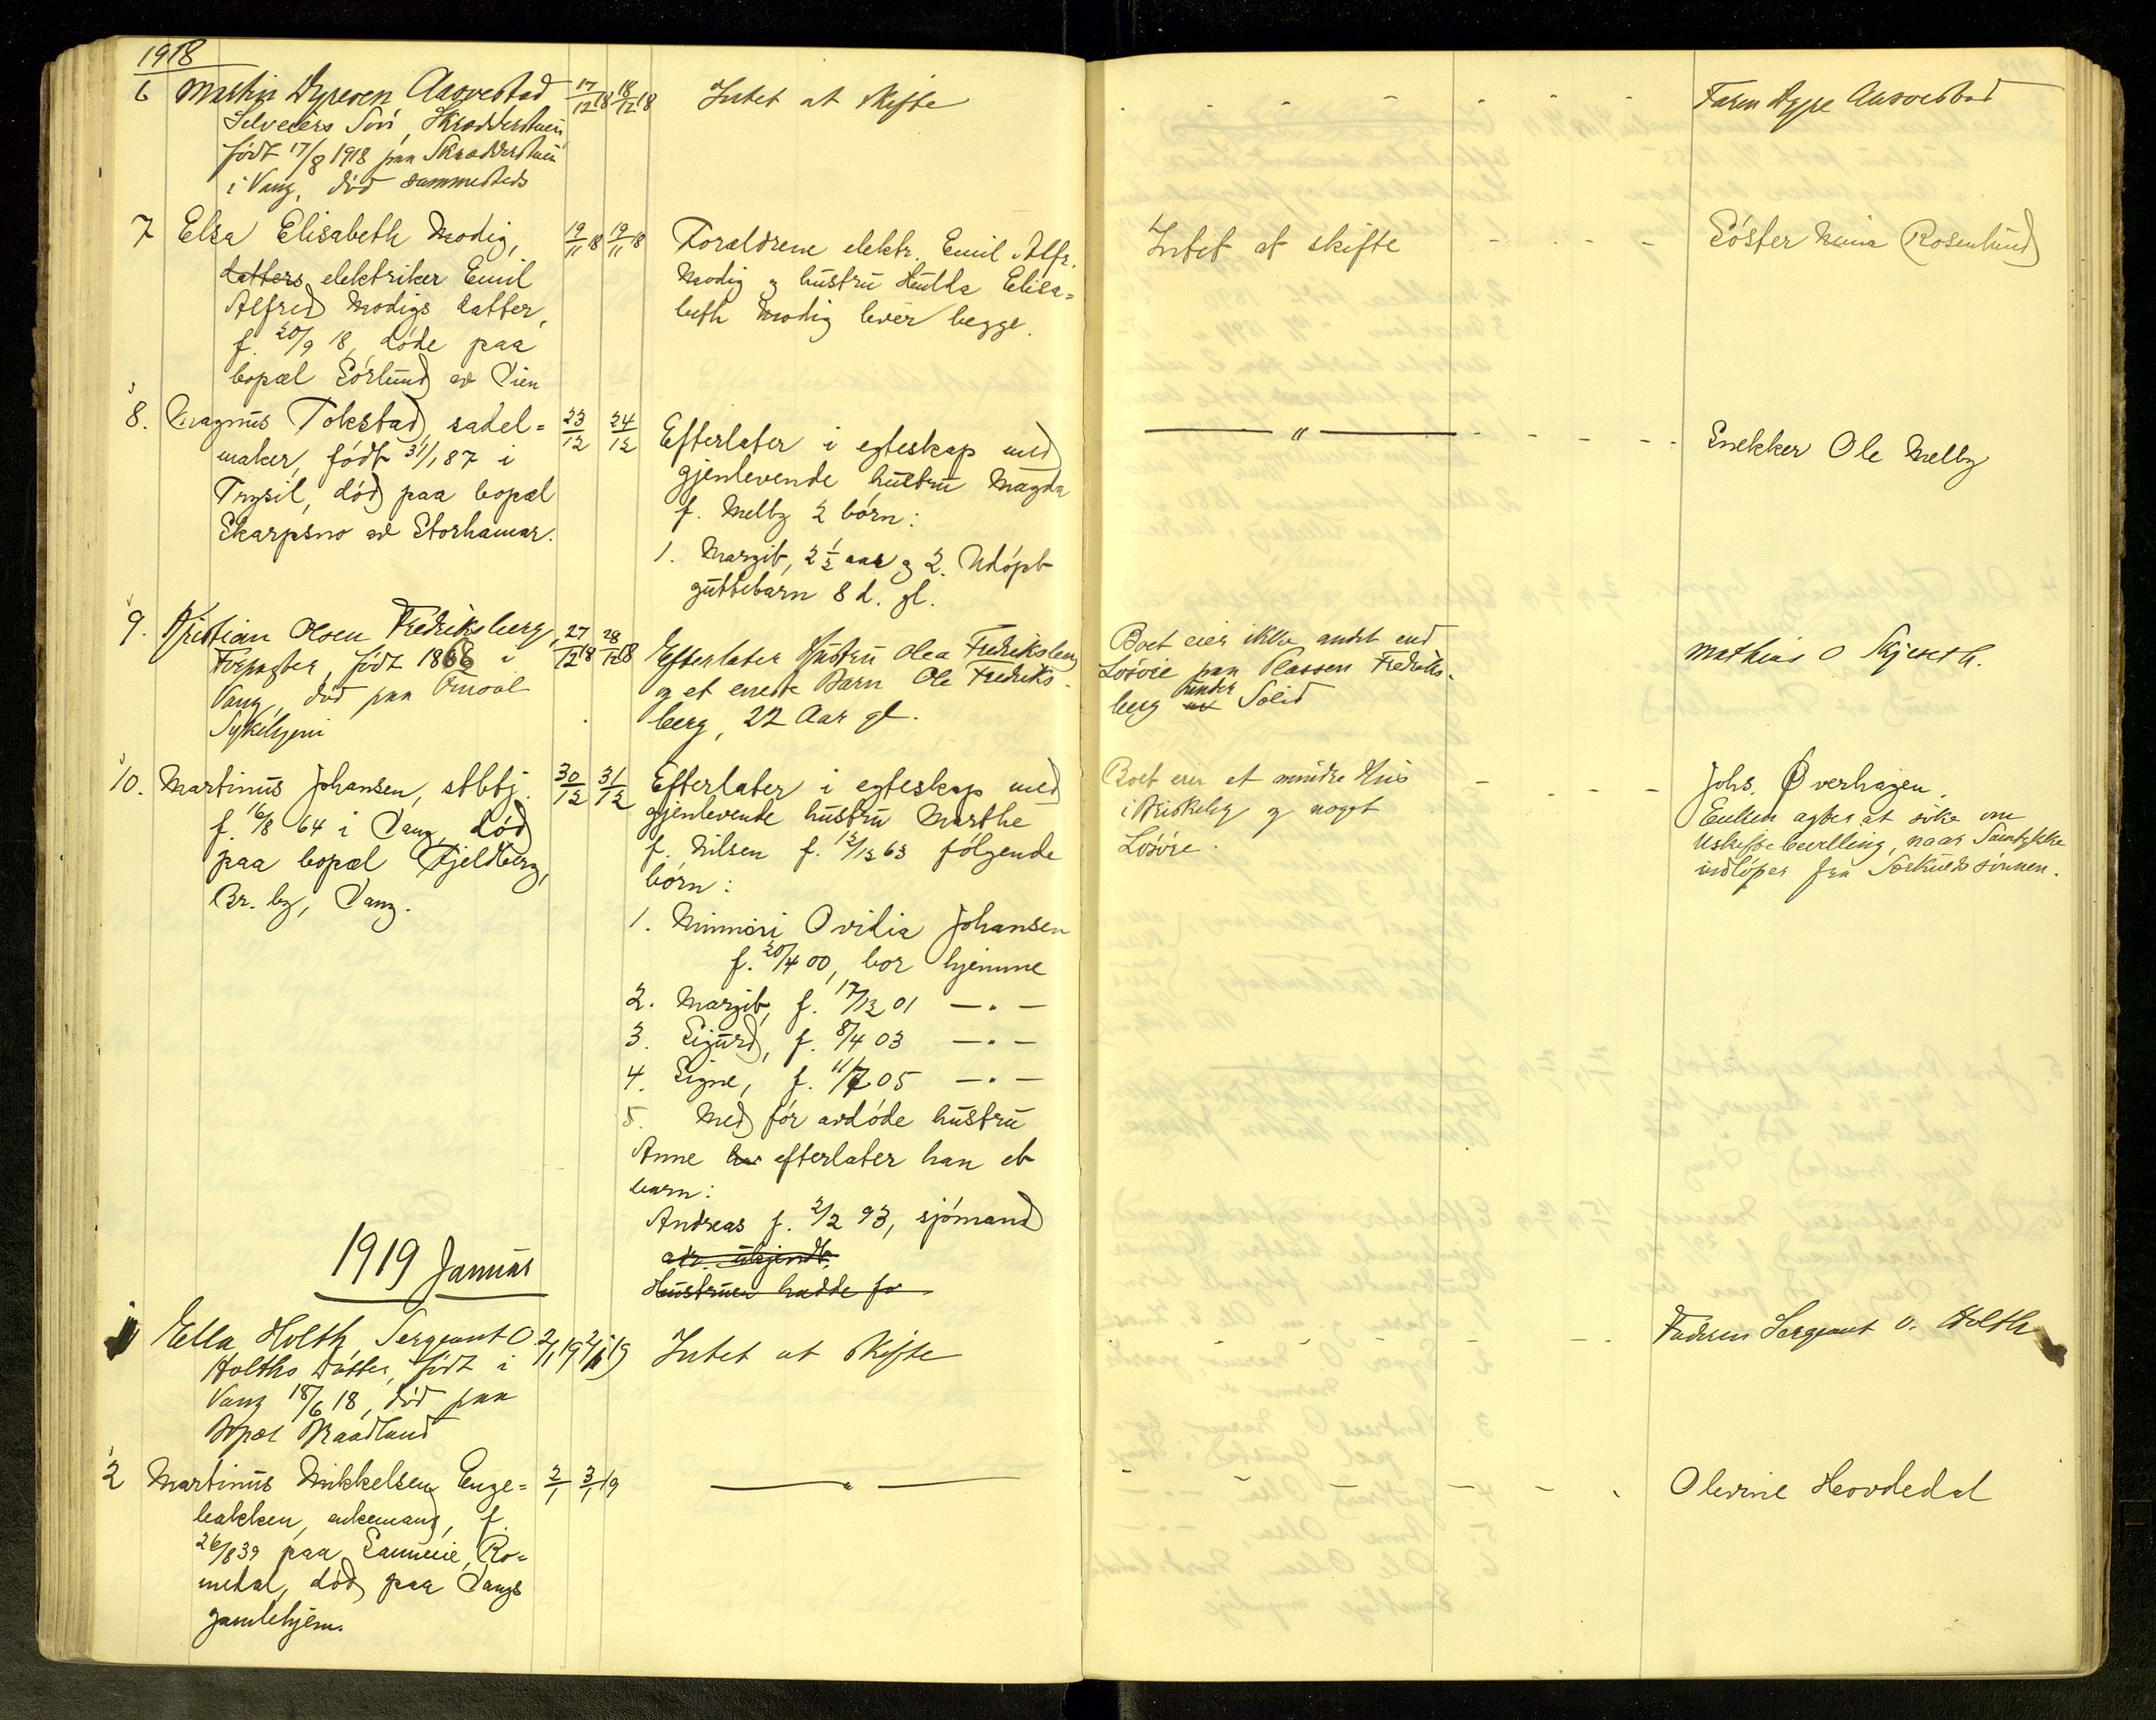 1918
6 Martin Dyresen Aasvestad 17/12 18 18/12 18 Intet at skifte Faren Dyre Aasvestad
Selveiers Søn, Skrædderstuen
født 17/8 1918 paa Skrædderstuen
i Vang, død sammesteds
7 Elsa Elisabeth Modig, 19/11 18 19/11 18 Forældrene elektr. Emil Alfr. Intet at skifte - - - - Søster Mina (Rosenlund)
datters elektriker Emil Modig og hustru Hulda Elisa=
Alfred Modigs datter, beth Modig lever begge.
f. 20/9 18, døde paa
bopæl Sørlund av Vien
8. Magnus Tokstad, sadel= 23/12 24/12 Efterlater i egteskap med — " — - - - - Snekker Ole Melby
maker, født 31/1 87 i gjenlevende hustru Magda
Trysil, død paa bopæl f. Melby 2 børn:
Skarpsno av Storhamar. 1. Margit, 2 1/2 aar og 2. Udøpt
guttebarn 8 d. gl.
9. Kristian Olsen Fredriksberg 27/12 18 28/12 18 Efterlater Hustru Olea Fredriksberg Boet eier ikke andet end Mathias O Skjeseth.
Forpagter, født 1866 i og et eneste Barn Ole Fredriks- Løsøre paa Plassen Fredriks-
Vang, død paa berg, 22 Aar gl. berg av under Solid
Sykehjem
10. Martinus Johansen, stbbtj. 30/12 31/12 Efterlater i egteskap med Boet eier et mindre Hus - - - - Johs. Øverhagen.
f. 16/8 64 i Vang, død gjenlevende hustru Marthe i Briskeby og noget Enken agter at søke om
paa bopæl Fjeldberg, f. Nilsen f. 12/12 63 følgende Løsøre. Uskiftebevilling, naar Samtykke
Br. by, Vang. børn: indløper fra Særkuldssønnen.
1. Minmori Ovilia Johansen
f. 20/4 00, bor hjemme
2. Margit, f. 17/12 01 — " —
3. Sigurd, f. 8/4 03 — " —
4. Signe, f. 11/7 05 — " —
5. Med før avdøde hustru
Anne har efterlater han et
barn:
Andreas f. 2/2 93, sjømand
adr. ukjendt.
Hustruen hadde før
1919 Januar
1 Ella Holth Sergeant O. 2/1 19 2/1 19 Intet at skifte - - Faderen Sergeant O. Holth
Holths Datter, født i
Vang 18/6 18, død paa
Bopæl Braadland
2 Martinus Mikkelsen Enge= 2/1 3/1 19 — " — - - - - Olerine Hovdedal
bakken, enkemand, f.
26/8 39 paa Ro=
medal, død paa Vangs
gamlehjem.